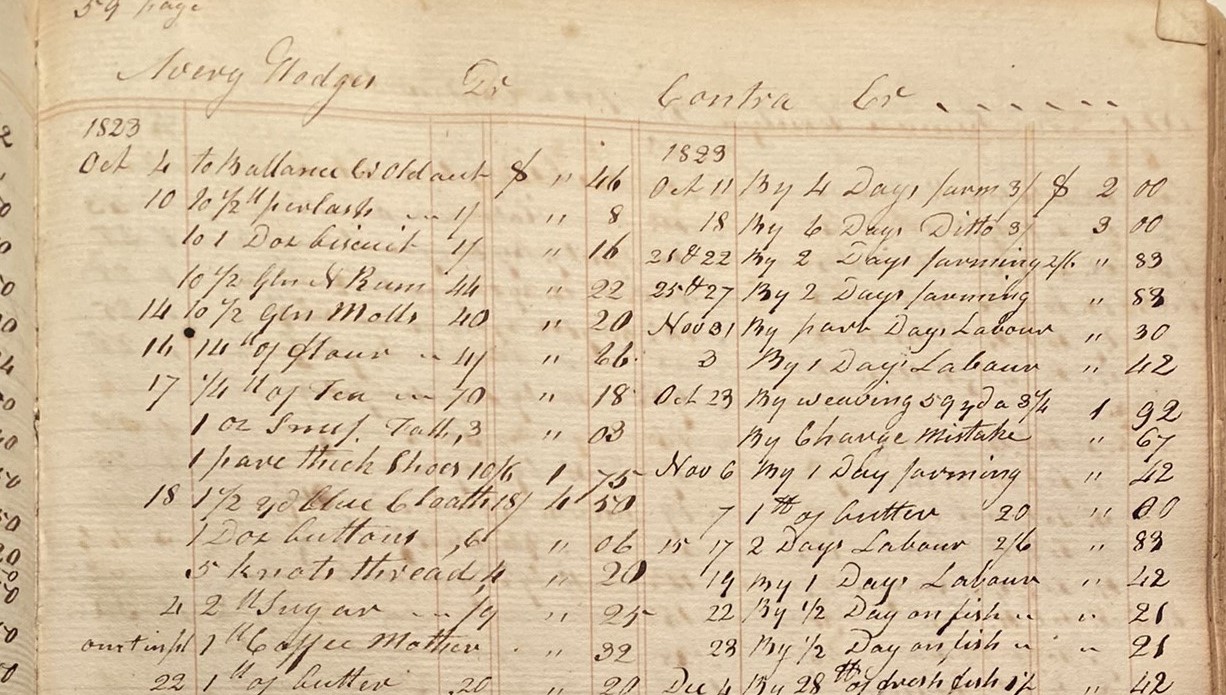 59 page
Avery Hodges Dr
Contra Cr
1823
Oct 4 to Ballance Old act $ " 46
10 to ½ ˡᵇ perlash 1/ " 8
to 1 Doz biscuit 1/ " 16
to ½ Gln N Rum 44 " 22
14 to ½ Gln Molls 40 " 20
16 14 ˡᵇ of flour 4/ " 66
17 ¼ ˡᵇ of Tea 70 " 18
1 oz Snuf 3 " 03
1 pare thick Shoes 10/6 1 75
18 1½ yd blue Cloath 18/ 4 50
1 Doz buttons ,6 " 06
5 knots thread 4 " 20
2 ˡᵇ Sugar /9 " 25
1 ˡᵇ Coffee Mother " 32
22 1 ˡᵇ of butter 20 " 20
1823
Oct 11 By 4 Days farm 3/ $ 2 00
18 By 6 Days Ditto 3/ 3 00
21 & 22 By 2 Days farming 2/6 " 83
25 & 27 By 2 Days farming " 83
Nov 31 By part Days Labour " 30
3 By 1 Days Labour " 42
Oct 23 By weaving 59 yd a 3¼ 1 92
By Charge Mistake " 67
Nov 6 By 1 Day farming " 42
7 1 ˡᵇ of butter 20 "
15 17 2 Days Labour 2/6 " 83
19 By 1 Days Labour " 42
22 By ½ Day on fish " 21
23 By ½ Day on fish " 21
Dec 4 By 28 ˡᵇ of fresh fish 1½ " 42